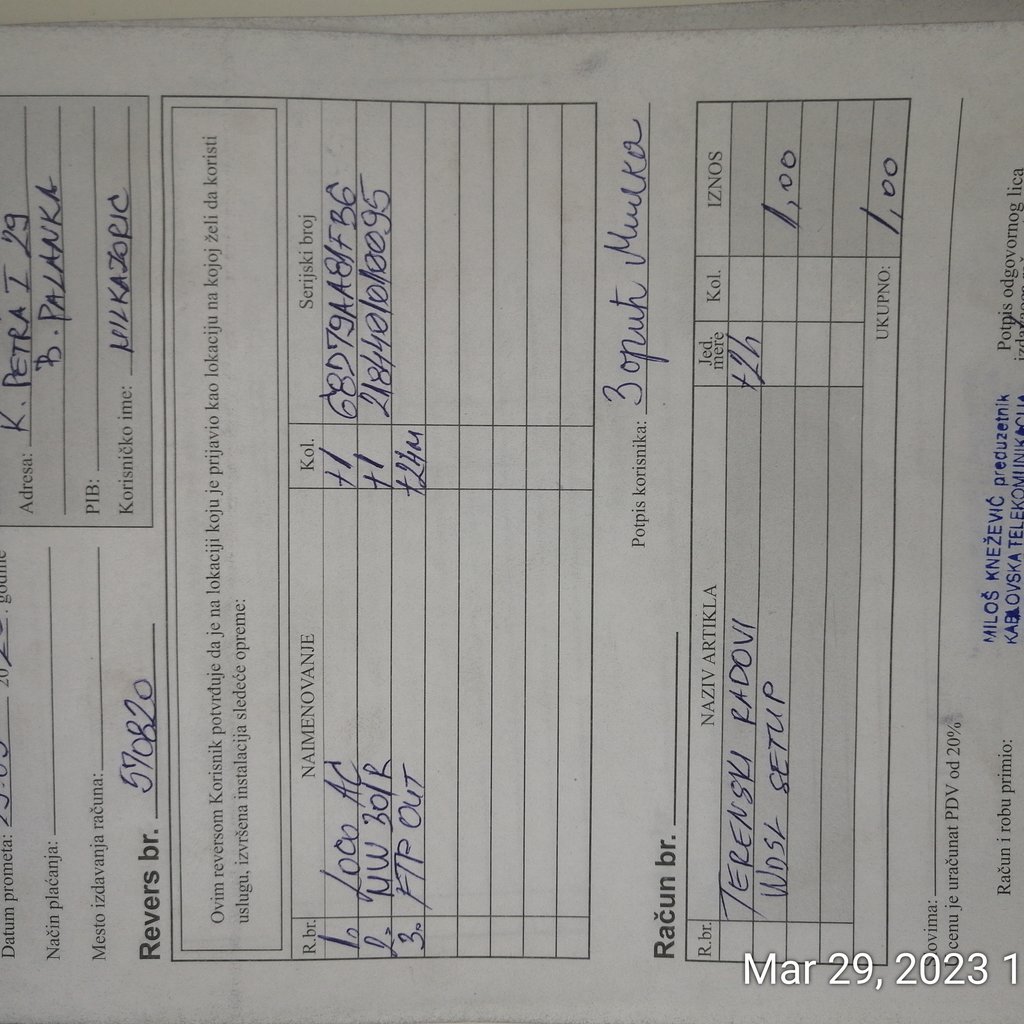 Datum prometa: 29.03 20 . godine
Način plaćanja:
Mesto izdavanja računa:
Adresa: K. PETRA I 29
B. PALANKA
PIB:
Korisničko ime: MILKAZORIC
Revers br. 570820
Ovim reversom Korisnik potvrđuje da je na lokaciji koju je prijavio kao lokaciju na kojoj želi da koristi
uslugu, izvršena instalacija sledeće opreme:
R.br. NAIMENOVANJE Kol. Serijski broj
1. Loco AC +1 68D79AA81FB6
2. MW 301R +1 2184401010095
3. FTP OUT +24m
Potpis korisnika: Зорић Милка
Račun br.
R.br. NAZIV ARTIKLA Jed. mere Kol. IZNOS
TERENSKI RADOVI +2h
WDSL SETUP 1,00
UKUPNO: 1,00
Slovima:
cenu je uračunat PDV od 20%
Račun i robu primio:
MILOŠ KNEŽEVIĆ preduzetnik
KABLOVSKA TELEKOMUNIKACIJA
Potpis odgovornog lica
Mar 29, 2023 1